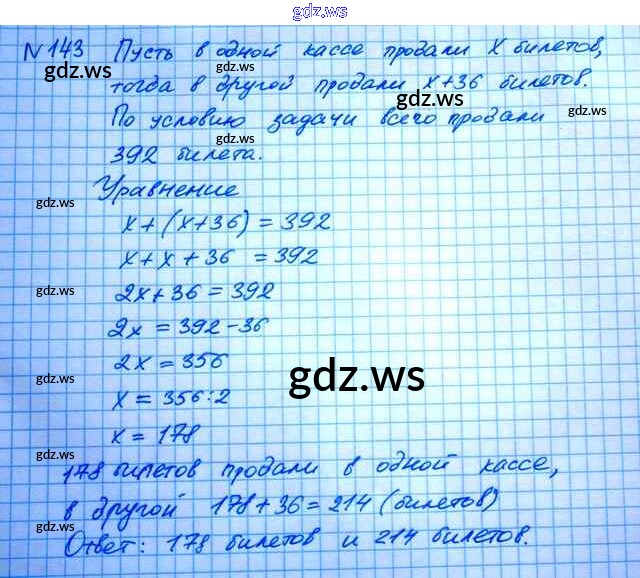 gdz.ws
N 143 Пусть в одной кассе продали x билетов,
gdz.ws gdz.ws
тогда в другой продали x+36 билетов.
gdz.ws gdz.ws
По условию задачи всего продали
gdz.ws
392 билета.
gdz.ws gdz.ws
Уравнение
gdz.ws
x+(x+36)=392
gdz.ws
x+x+36 =392
2x+36=392
gdz.ws
2x=392-36
2x=356
gdz.ws gdz.ws
x=356:2
x=178
gdz.ws
178 билетов продали в одной кассе,
в другой 178+36=214 (билетов)
gdz.ws
Ответ: 178 билетов и 214 билетов.